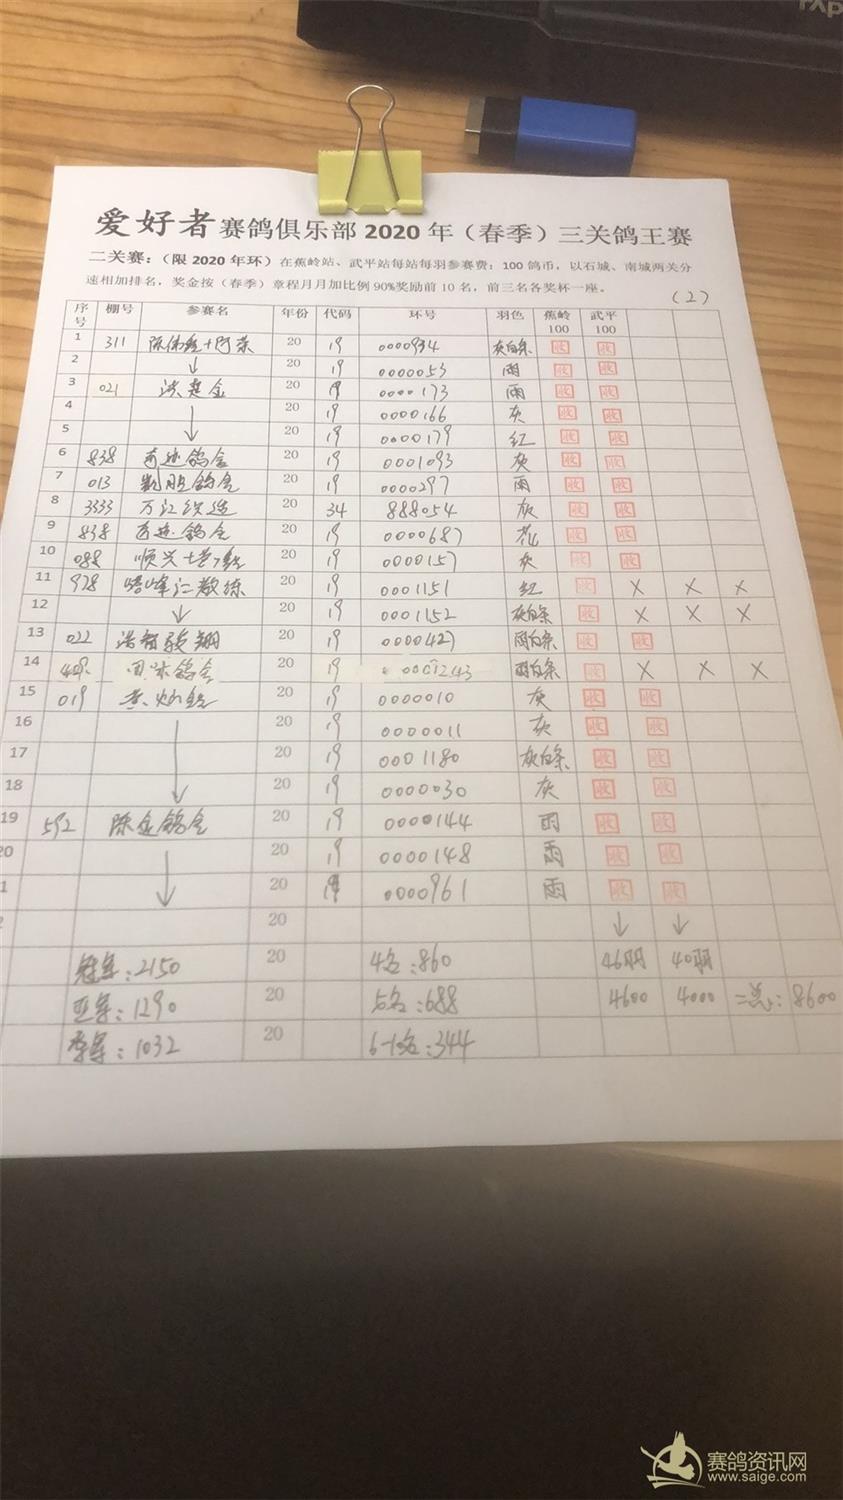 爱好者赛鸽俱乐部2020年（春季）三关鸽王赛
二关赛：（限2020年环）在蕉岭站、武平站每站每羽参赛费：100鸽币，以石城、南城两关分
速相加排名，奖金按（春季）章程月月加比例90%奖励前10名，前三名各奖杯一座。
(2)
序号 棚号 参赛名 年份 代码 环号 羽色 蕉岭100 武平100
1 311 20 19 灰白条 收 收
2 ↓ 20 19 0000053 雨 收 收
3 021 20 19 0000173 雨 收 收
4 20 19 0000166 灰 收 收
5 ↓ 20 19 0000179 红 收 收
6 838 奇迹鸽舍 20 19 0001093 灰 收 收
7 013 凯胜鸽舍 20 19 0000297 雨 收 收
8 3333 20 34 888054 灰 收 收
9 838 奇迹鸽舍 20 19 0000687 花 收 收
10 088 20 19 0000157 灰 收 收
11 928 20 19 0001151 红 收 X X X
12 ↓ 20 19 0001152 灰白条 收 X X X
13 022 20 19 0000427 雨白条 收 收
14 20 19 雨白条 收 X X X
15 019 20 19 0000010 灰 收 收
16 20 19 0000011 灰 收 收
17 20 19 0001180 灰白条 收 收
18 ↓ 20 19 0000030 灰 收 收
19 592 陈金鸽舍 20 19 0000144 雨 收 收
20 20 19 0000148 雨 收 收
1 ↓ 20 19 0000961 雨 收 收
2 20 ↓ ↓
冠军：2150 20 4名：860 46羽 40羽
亚军：1290 20 5名：688 4600 4000 =总：8600
季军：1032 20 6-10名：344
赛鸽资讯网
www.saige.com